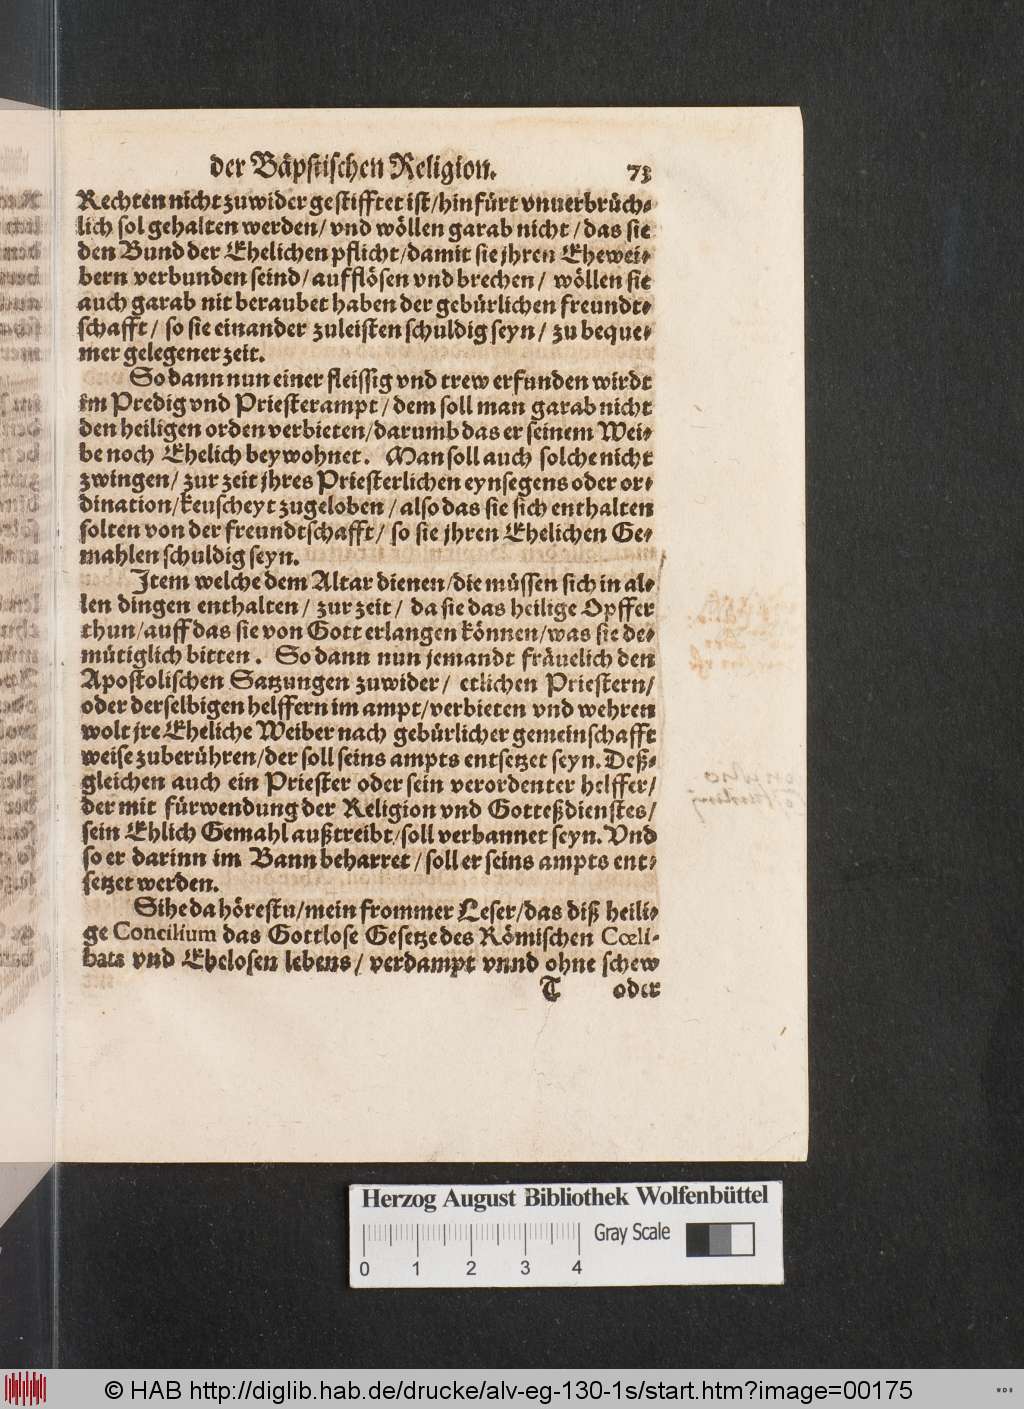 der Bäpstischen Religion. 73
Rechten nicht zuwider gestifftet ist/hinfürt vnuerbrüch⸗
lich sol gehalten werden/ vnd wöllen garab nicht / das sie
den Bund der Ehelichen pflicht/damit sie jhren Ehewei⸗
bern verbunden seind/aufflösen vnd brechen/ wöllen sie
auch garab nit beraubet haben der gebürlichen freundt⸗
schafft/ so sie einander zuleisten schuldig seyn/ zu beque⸗
mer gelegener zeit.
So dann nun einer fleissig vnd trew erfunden wirdt
im Predig vnd Priesterampt/ dem soll man garab nicht
den heiligen orden verbieten/darumb das er seinem Wei⸗
be noch Ehelich beywohnet. Man soll auch solche nicht
zwingen/ zur zeit jhres Priesterlichen eynsegens oder or⸗
dination/keuscheyt zugeloben /also das sie sich enthalten
solten von der freundtschafft/ so sie jhren Ehelichen Ge⸗
mahlen schuldig seyn.
Item welche dem Altar dienen/die müssen sich in al⸗
len dingen enthalten/ zur zeit/ da sie das heilige Opffer
thun/auff das sie von Gott erlangen können/was sie de⸗
mütiglich bitten. So dann nun jemandt fräuelich den
Apostolischen Satzungen zuwider/ etlichen Priestern/
oder derselbigen helffern im ampt/verbieten vnd wehren
wolt jre Eheliche Weiber nach gebürlicher gemeinschafft
weise zuberühren/der soll seins ampts entsetzet seyn. Deß⸗
gleichen auch ein Priester oder sein verordenter helffer/
der mit fürwendung der Religion vnd Gotteßdienstes/
sein Ehlich Gemahl außtreibt/soll verbannet seyn. Vnd
so er darinn im Bann beharret /soll er seins ampts ent⸗
setzet werden.
Sihe da hörestu/mein frommer Leser/das diß heili⸗
ge Concilium das Gottlose Gesetze des Römischen Cœli-
bats vnd Ehelosen lebens/ verdampt vnnd ohne schew
T oder
Herzog August Bibliothek Wolfenbüttel
Gray Scale
0 1 2 3 4
© HAB http://diglib.hab.de/drucke/alv-eg-130-1s/start.htm?image=00175